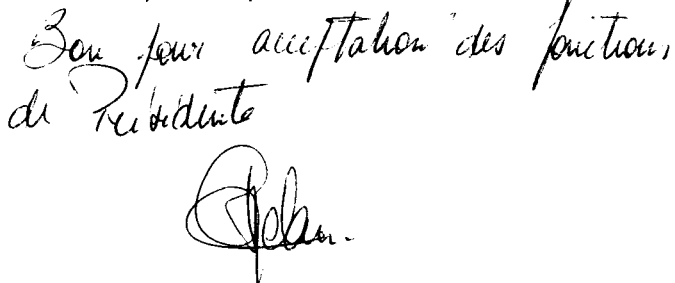 Bon pour acceptation des fonctions
de Présidente